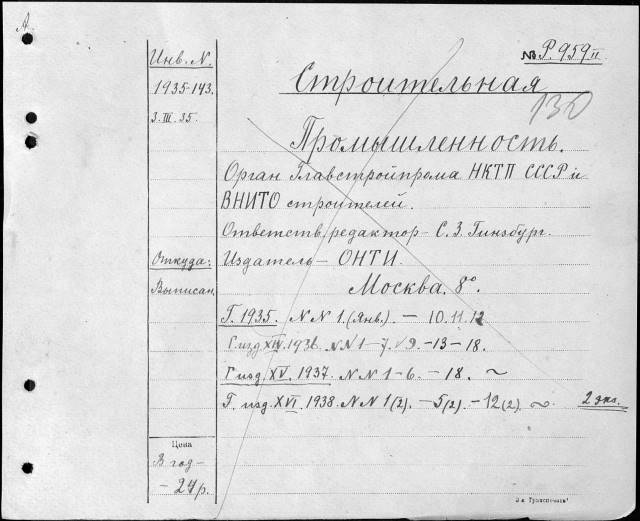 А.
Инв. N.
№ Р. 959 II
1935-143.
Строительная
130
3. III. 35.
Промышленность.
Орган Главстройпрома НКТП СССР и
ВНИТО строителей.
Ответств. редактор - С. З. Гинзбург.
Откуда:
Издатель - ОНТИ.
Выписан.
Москва. 8°.
Г. 1935. NN 1. (янв.) - 10. 11. 12
Г. изд. XIV. 1936. NN 1-7. 9. -13-18.
Г. изд. XV. 1937. NN 1-6. - 18. ~
Г. изд. XVI. 1938. NN 1(2). -5(2). -12(2). ~. 2 экз.
Цена
В год -
- 24 р.